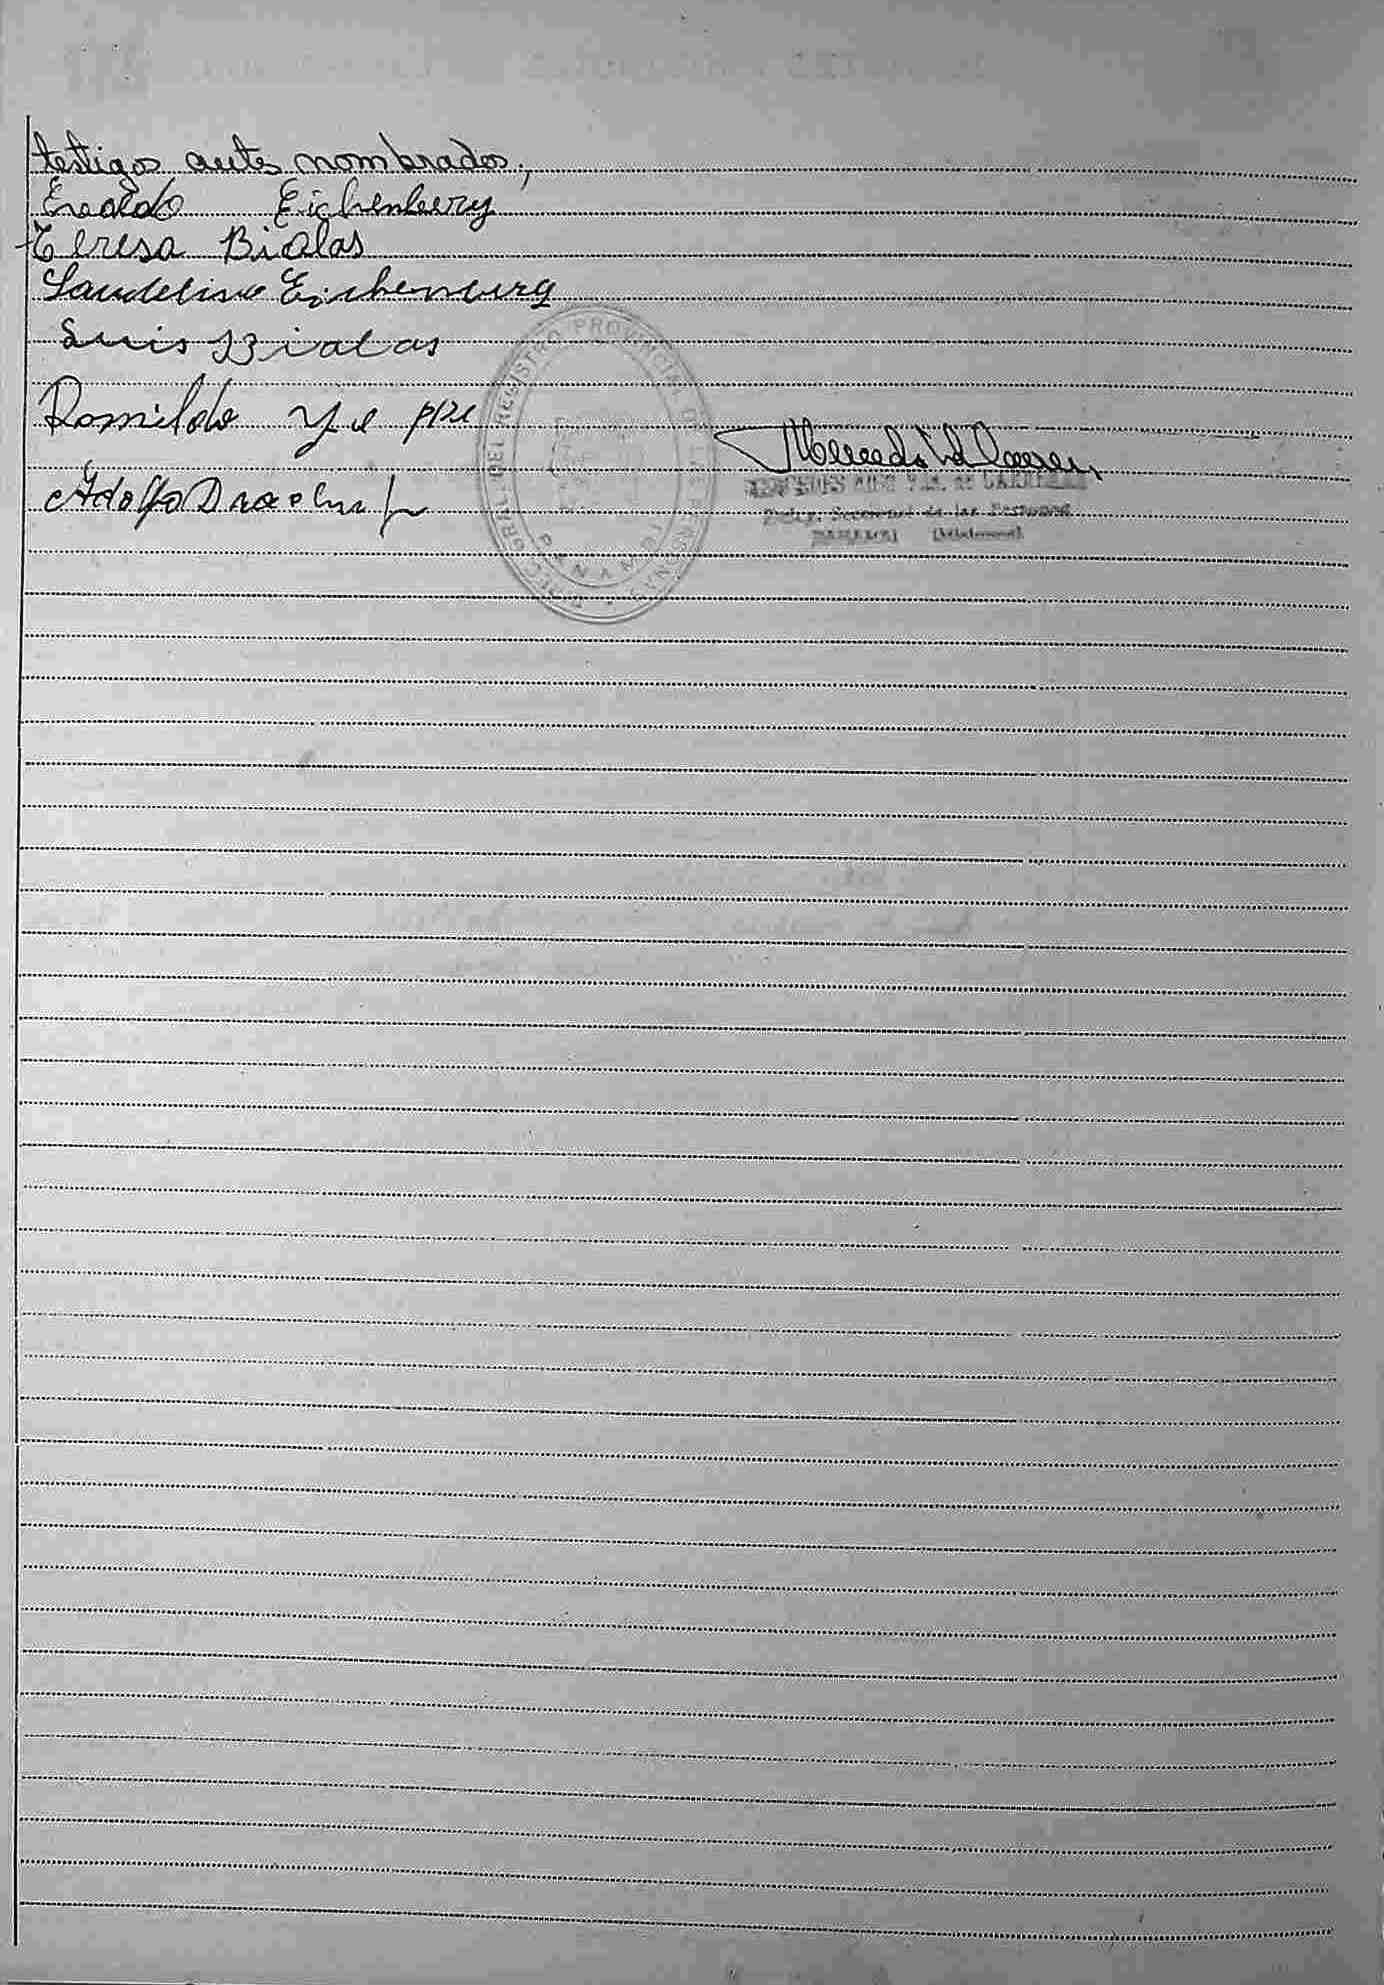 testigos antes nombrados,
Eraldo Eichenberg
Teresa Bialas
Laudelino Eichenberg
Luis Bialas
Romildo
Adolfo
DIREC. GRAL. DEL REGISTRO PROVINCIAL DE LAS PERSONAS
PANAMBI
MERCEDES
de las Personas
PANAMBI (Misiones)